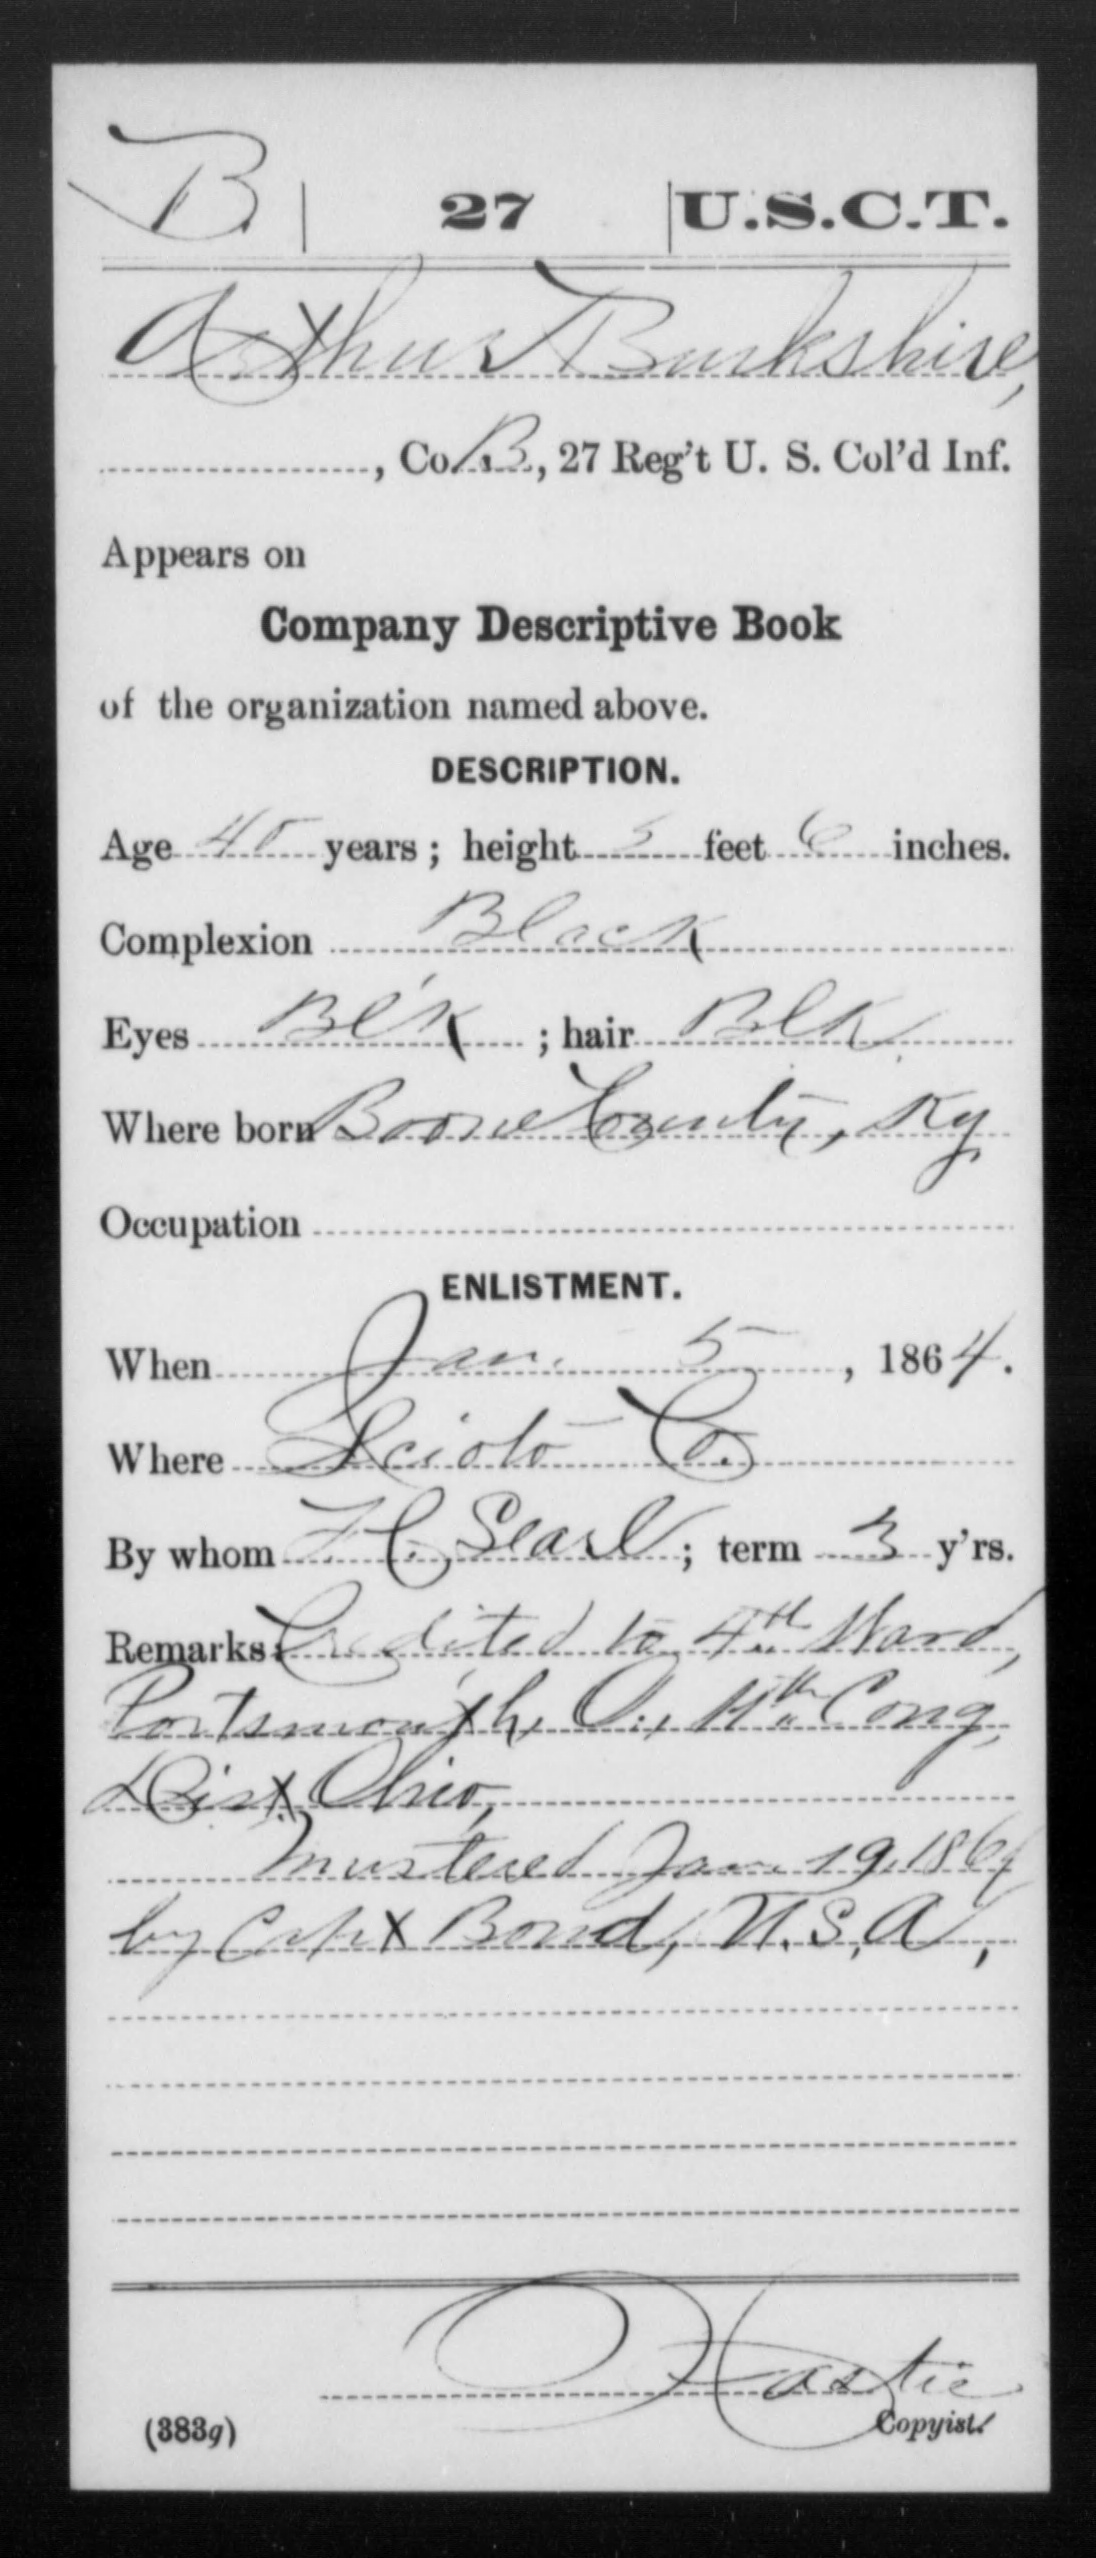 B | 27 | U.S.C.T.
Arthur Burkshire,
, Co. B, 27 Reg't U. S. Col'd Inf.
Appears on
Company Descriptive Book
of the organization named above.
DESCRIPTION.
Age 45 years; height 5 feet 6 inches.
Complexion Black
Eyes Bl'k ; hair Blk
Where born Boone County, Ky
Occupation
ENLISTMENT.
When Jan. 5 , 1864.
Where Scioto Co.
By whom F C. Searl ; term 3 y'rs.
Remarks: Credited to 4th Ward,
Portsmouth, O., 11th Cong,
Dist Ohio,
Mustered Jan. 19, 1864
by Capt Bond, U.S.A,
Hastie
(383g) Copyist.